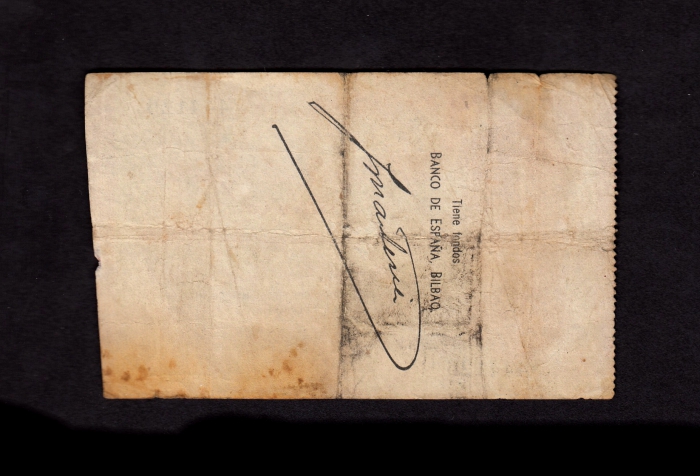 Tiene fondos
BANCO DE ESPAÑA, BILBAO